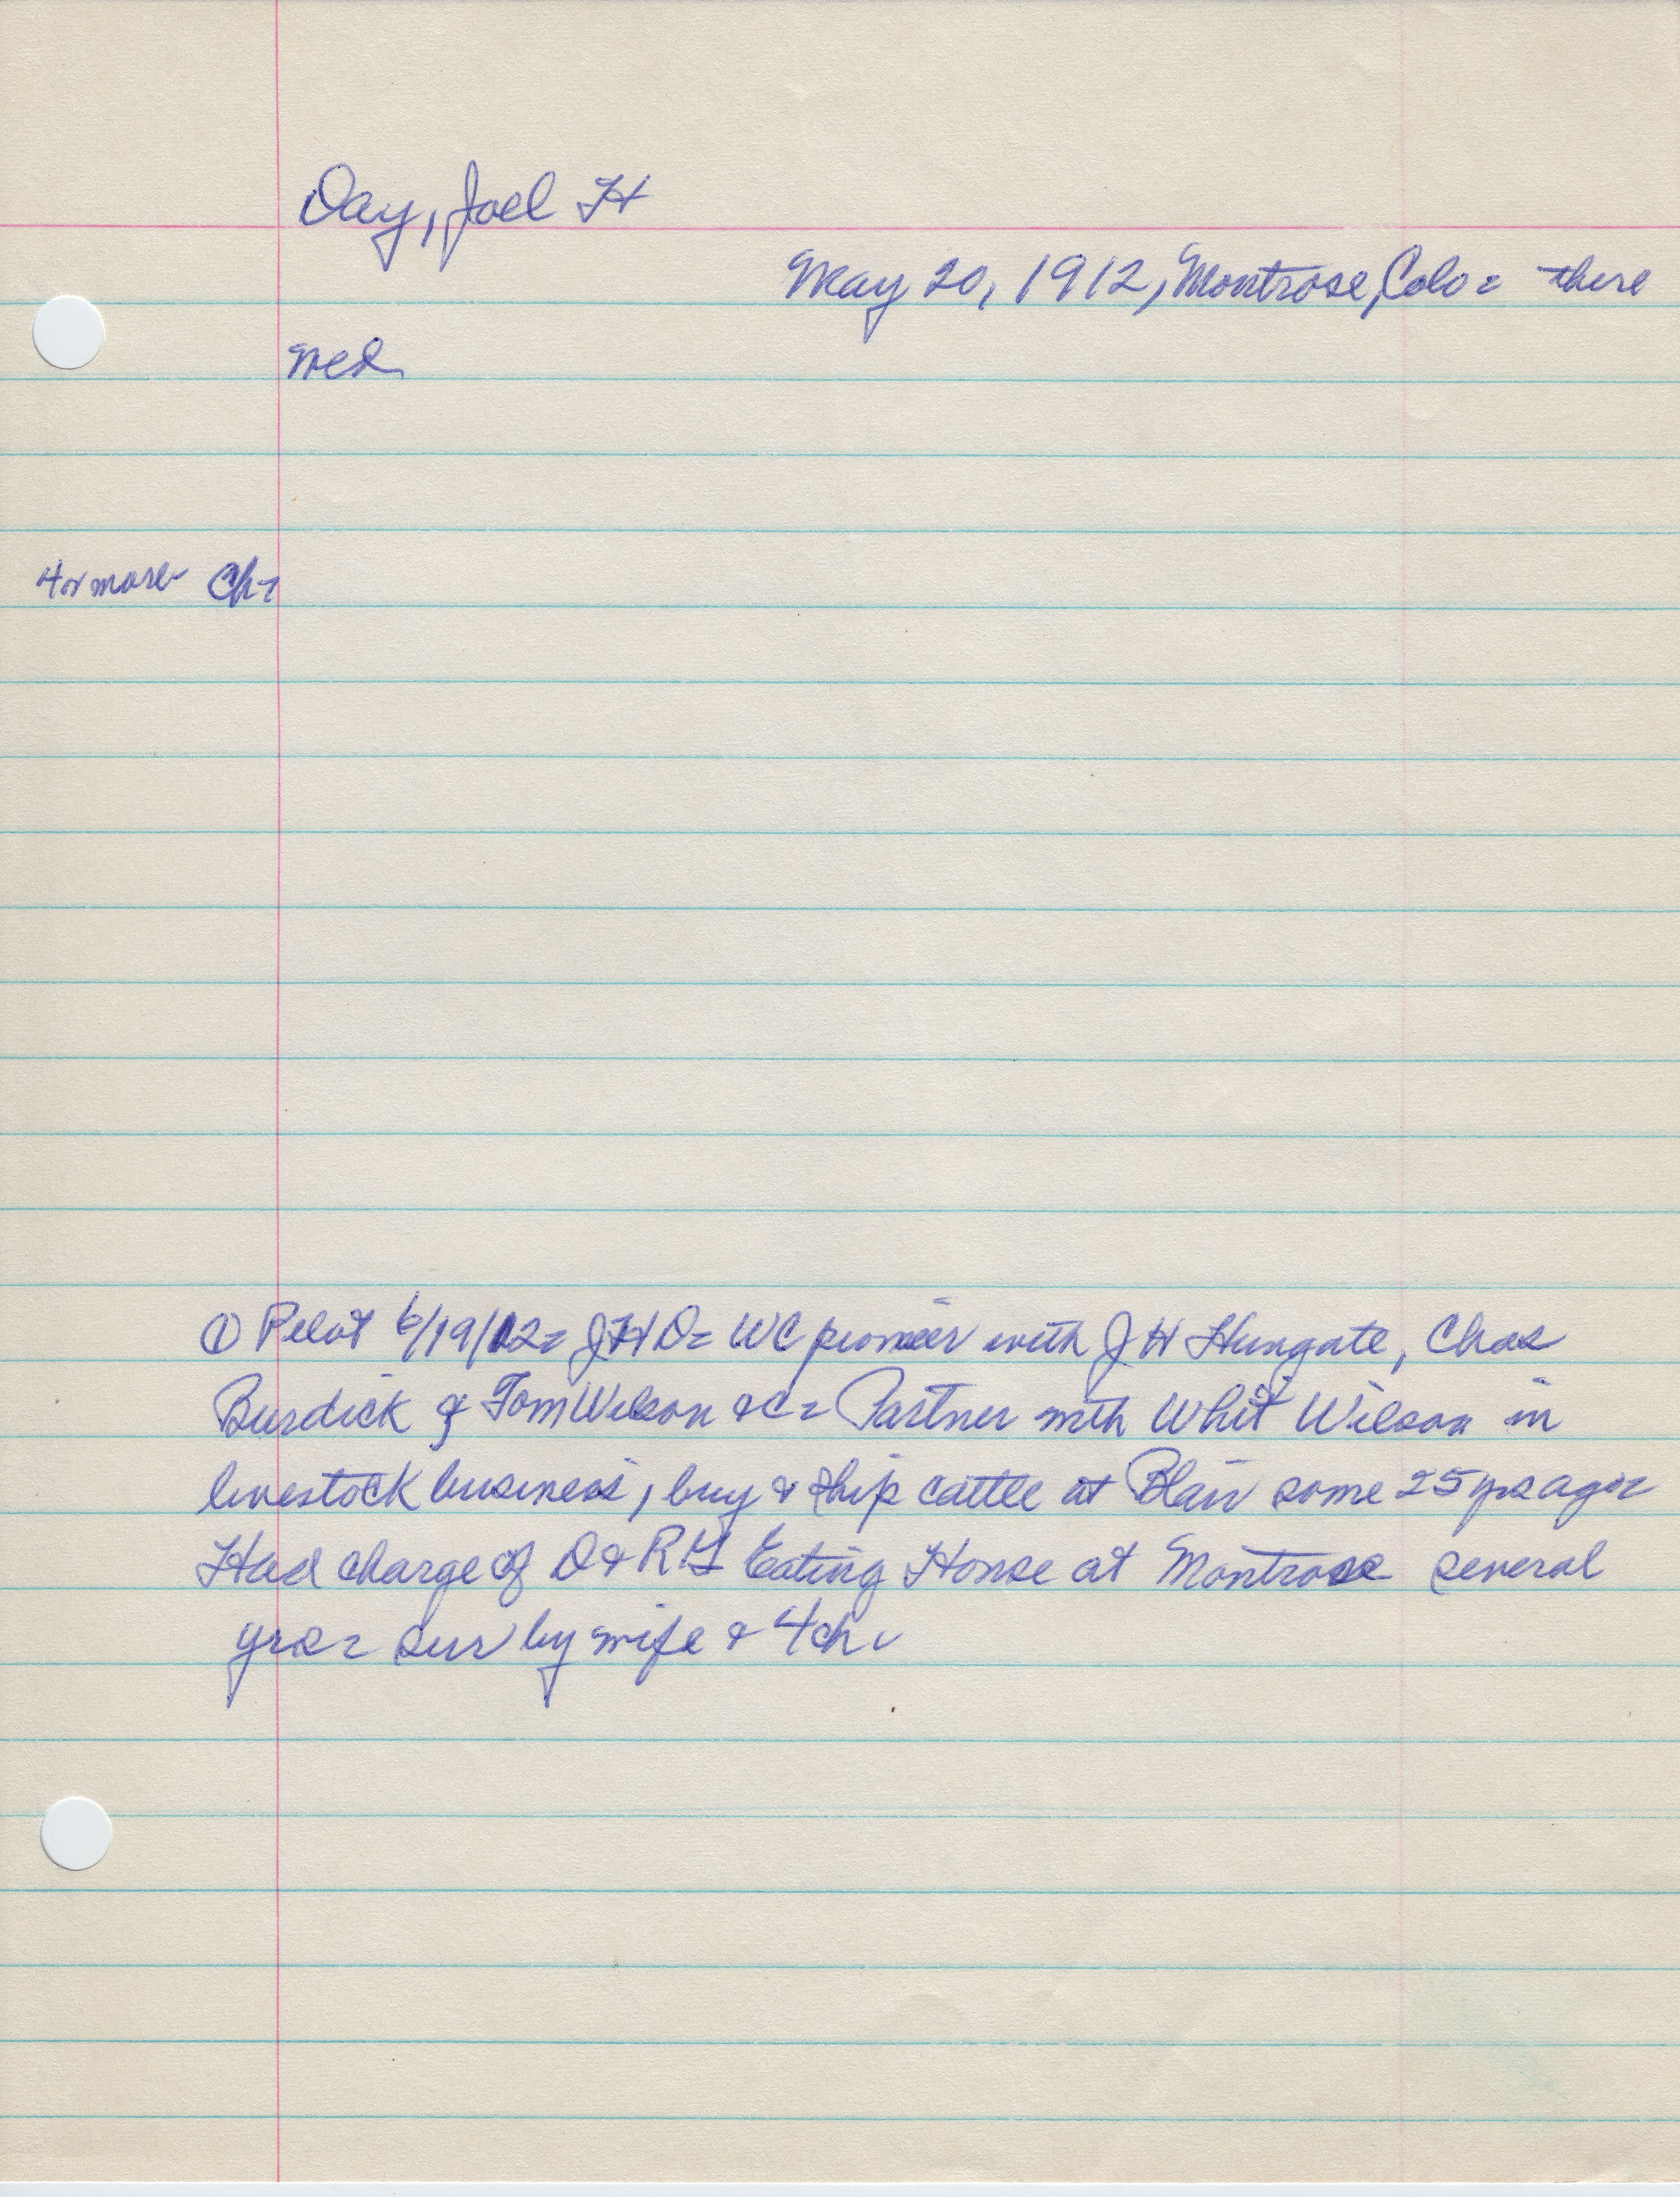 Day, Joel H
May 20, 1912, Montrose, Colo = there
Med
4 or more Ch-
① Pilot 6/19/12 = JHD = WC pioneer with J H Hungate, Chas
Burdick & Tom Wilson &C = Partner with Whit Wilson in
livestock business, buy & ship cattle at Blair some 25 yrs ago =
Had charge of D & R G Eating House at Montrose several
yrs = sur by wife & 4 ch.